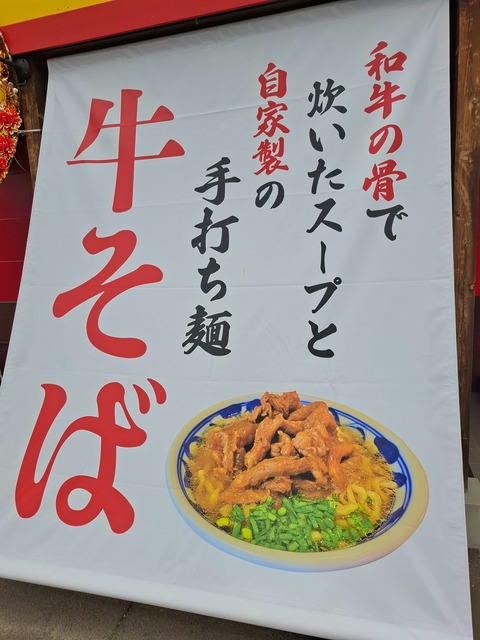 和牛の骨で
炊いたスープと
自家製の
手打ち麺
牛そば